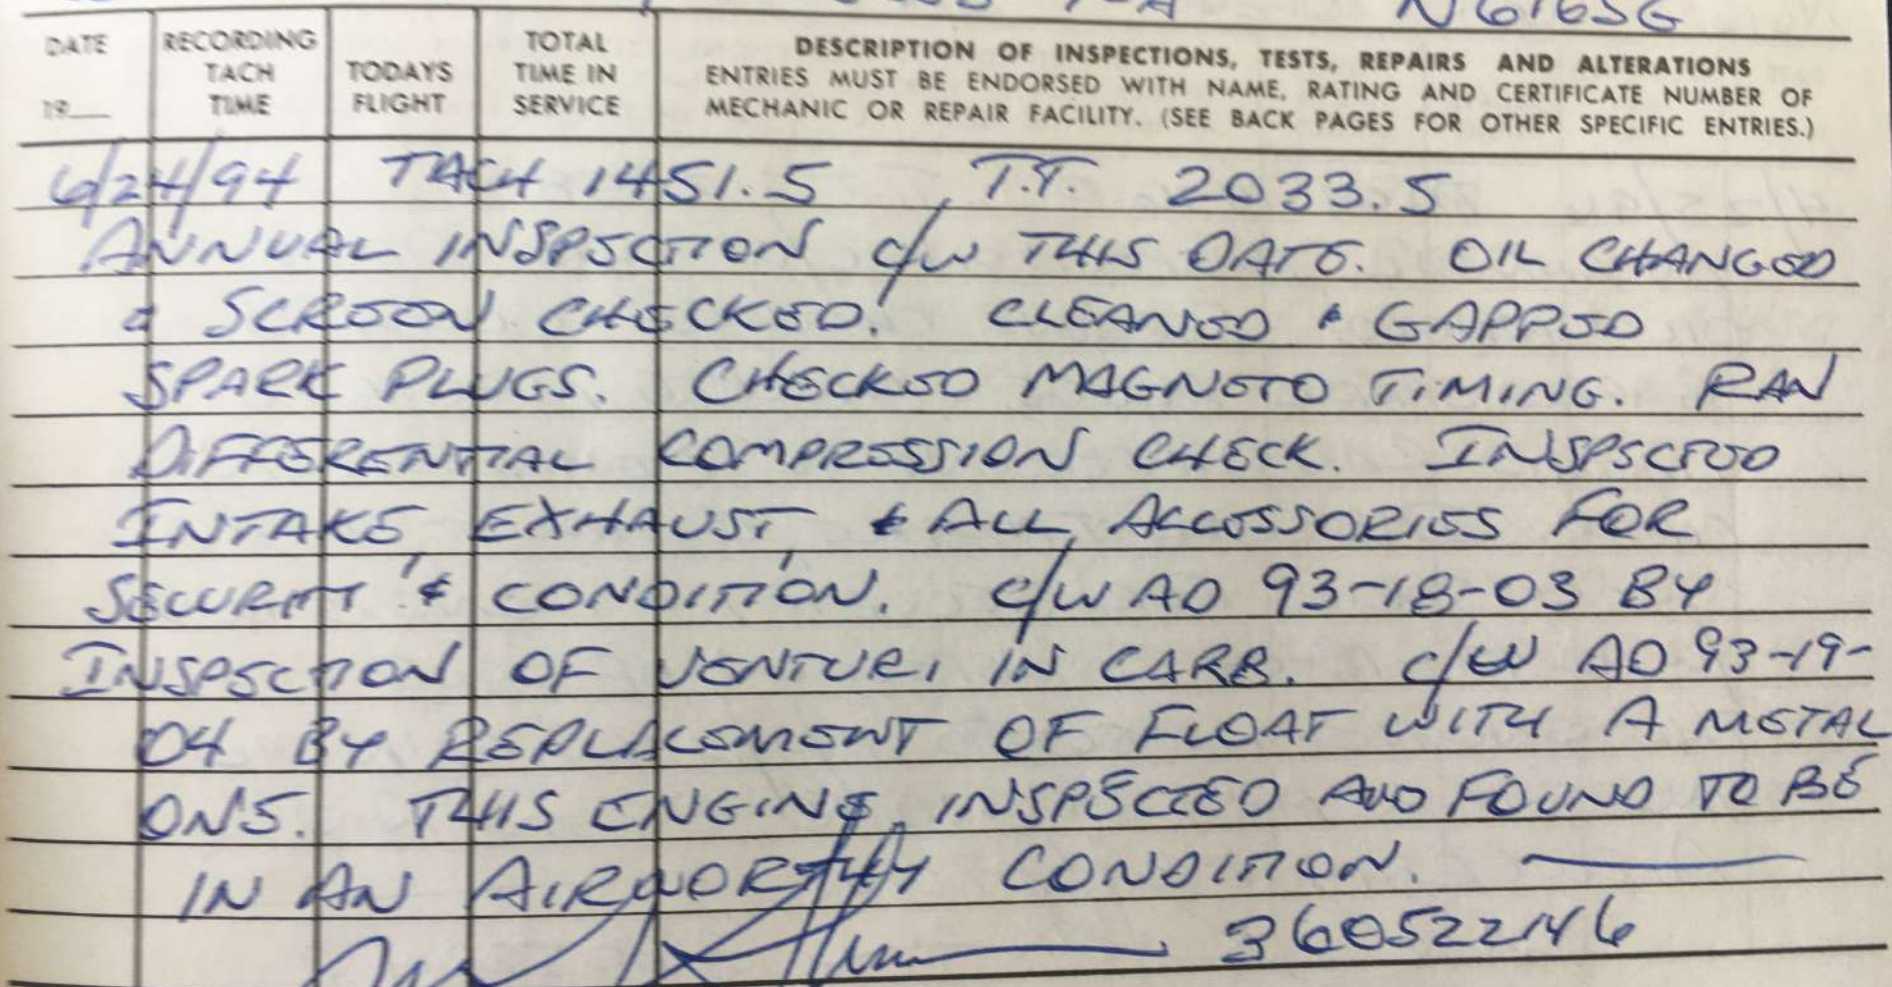 N6163G
DATE
19__
RECORDING
TACH
TIME
TODAYS
FLIGHT
TOTAL
TIME IN
SERVICE
DESCRIPTION OF INSPECTIONS, TESTS, REPAIRS AND ALTERATIONS
ENTRIES MUST BE ENDORSED WITH NAME, RATING AND CERTIFICATE NUMBER OF
MECHANIC OR REPAIR FACILITY. (SEE BACK PAGES FOR OTHER SPECIFIC ENTRIES.)
6/24/94 TACH 1451.5 T.T. 2033.5
ANNUAL INSPECTION c/w THIS DATE. OIL CHANGED
& SCREEN CHECKED. CLEANED & GAPPED
SPARK PLUGS. CHECKED MAGNETO TIMING. RAN
DIFFERENTIAL COMPRESSION CHECK. INSPECTED
INTAKE, EXHAUST, & ALL ACCESSORIES FOR
SECURITY & CONDITION. c/w AD 93-18-03 BY
INSPECTION OF VENTURI IN CARB. c/w AD 93-19-
04 BY REPLACEMENT OF FLOAT WITH A METAL
ONE. THIS ENGINE INSPECTED AND FOUND TO BE
IN AN AIRWORTHY CONDITION.
360522146